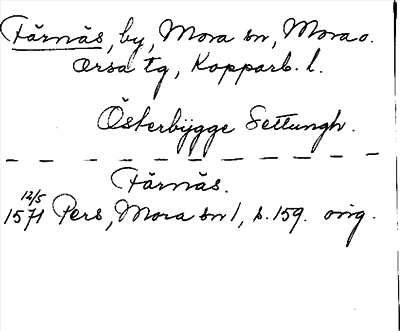 Färnäs, by, Mora sn, Mora o.
Orsa tg, Kopparb. l.
Österbygge Settungh.
Färnäs.
12/5
1571 Pers, Mora sn 1, s. 159. orig.